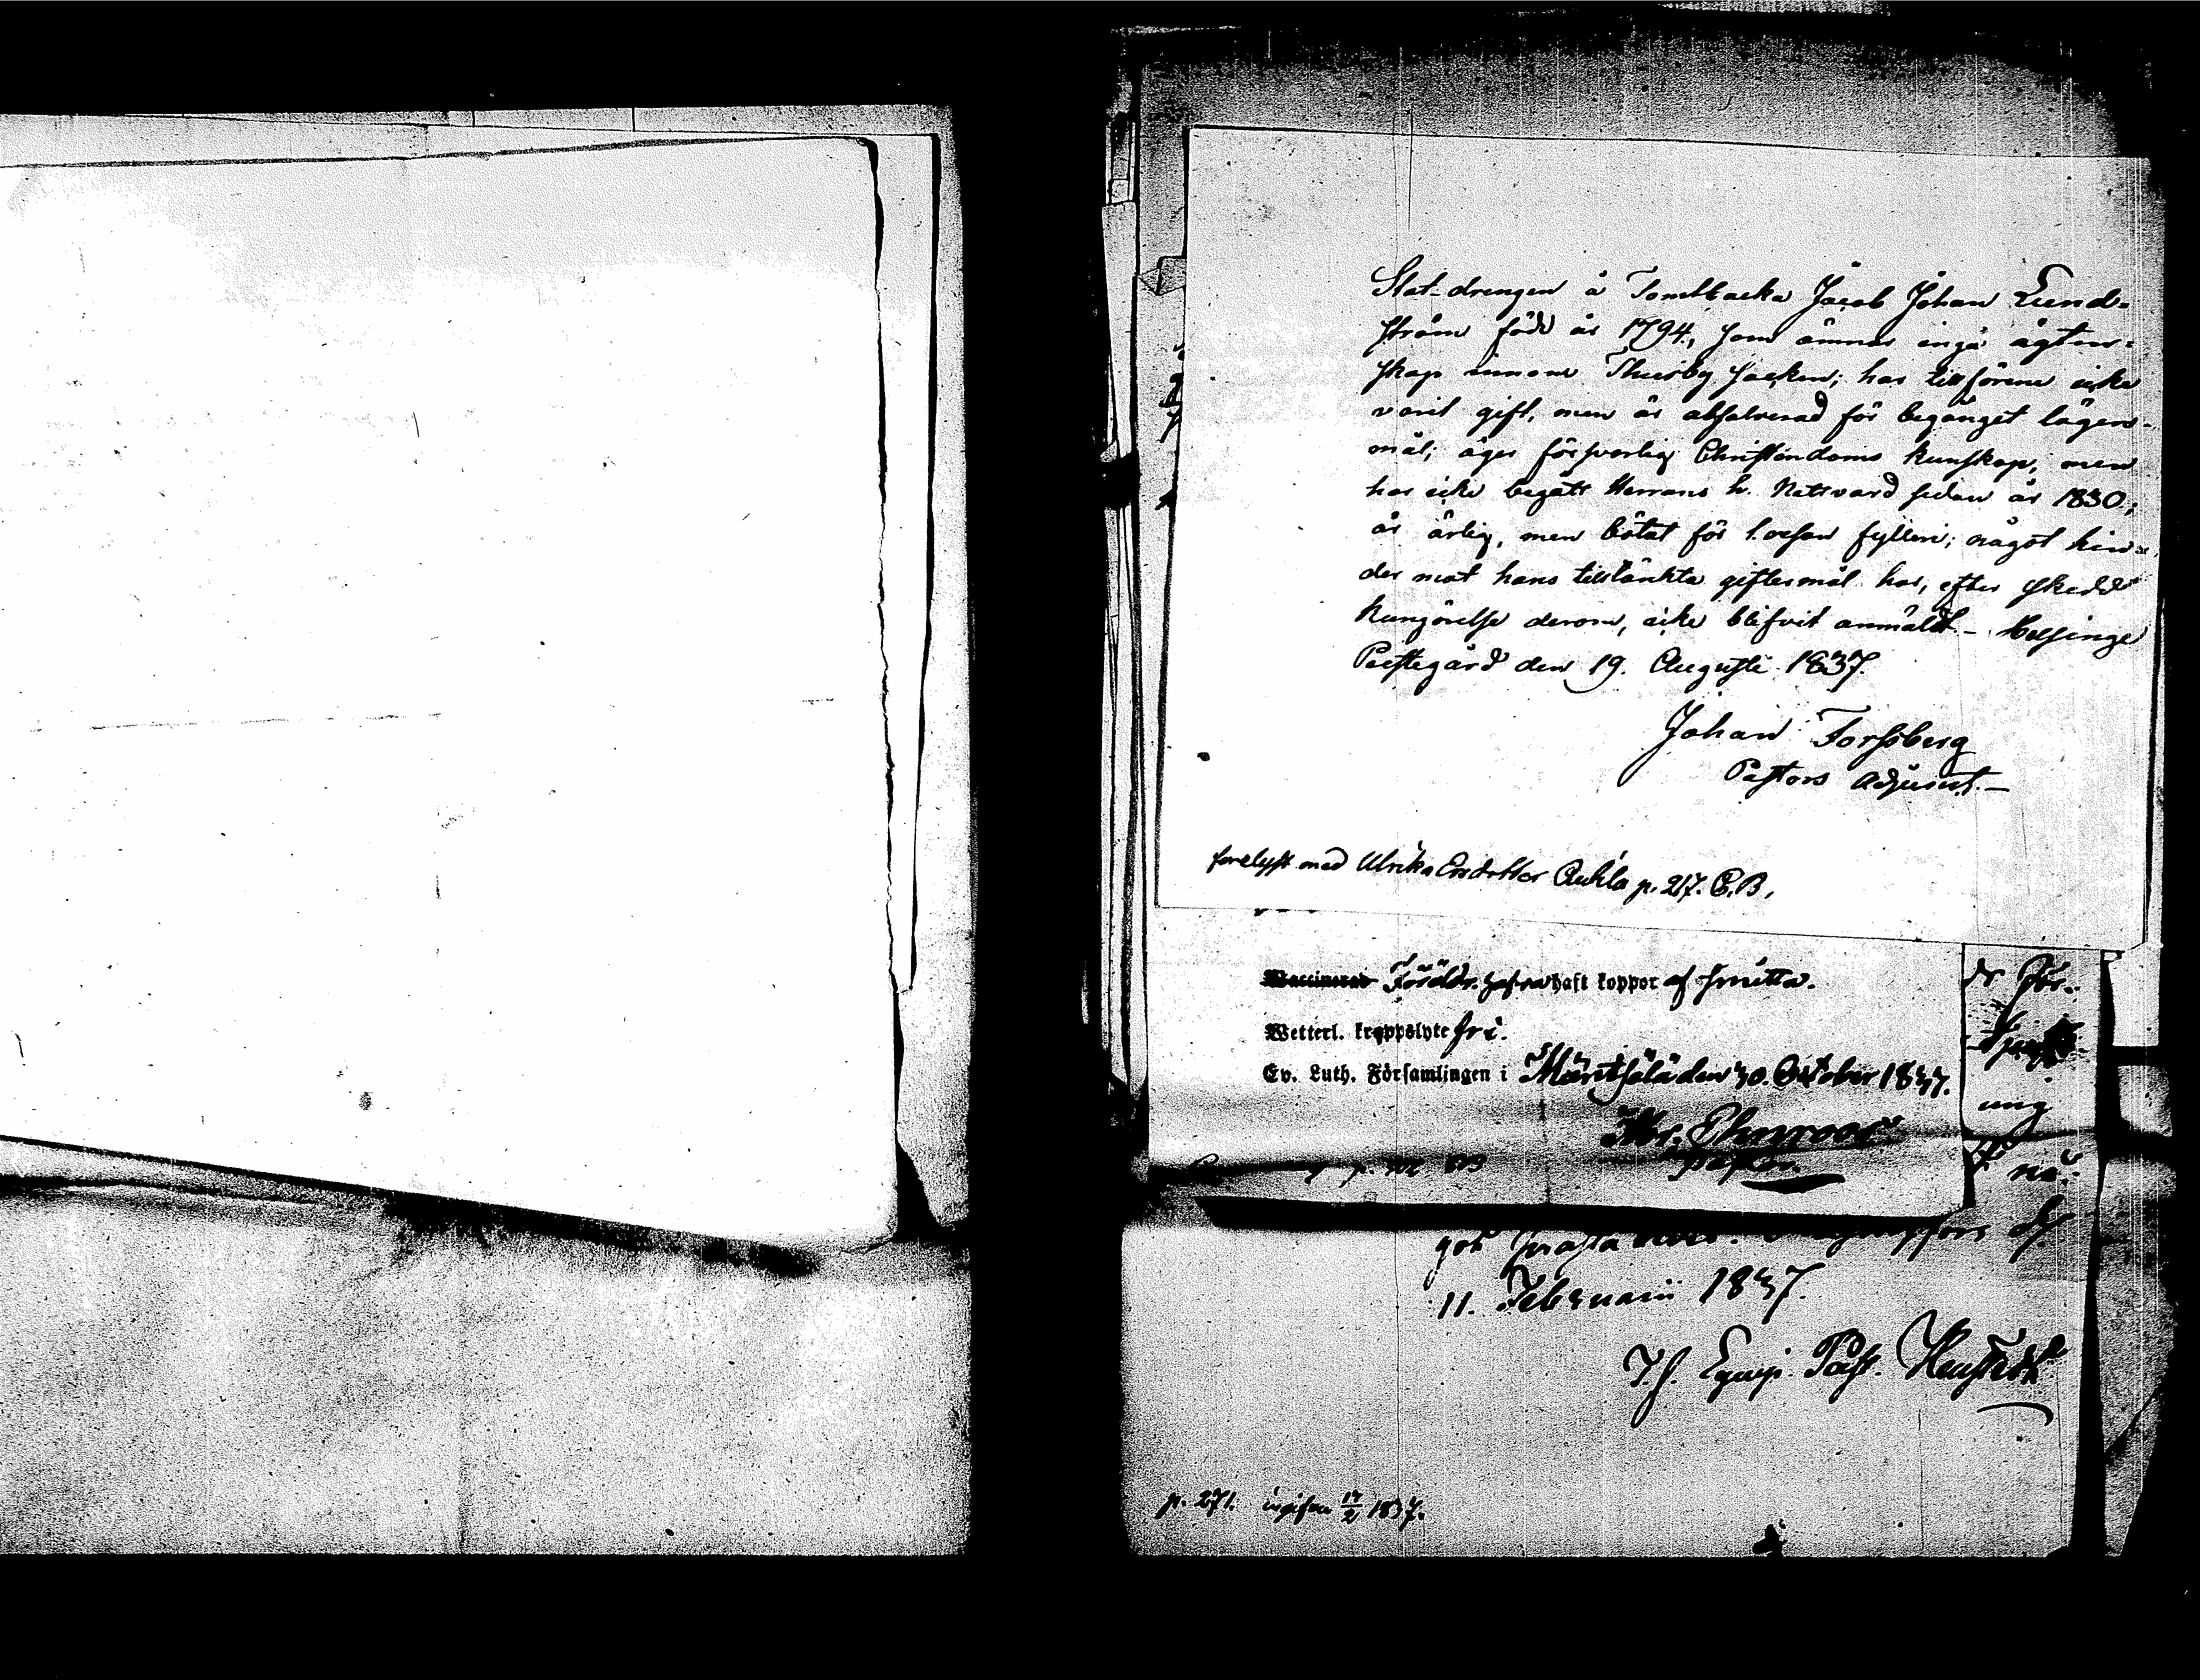 Stat-drengen å Tomtbacka Jacob Johan Lund-
ström född år 1794, som ämnar ingå ägten-
skap innom Thusby Socken; har tillförene icke
varit gift, men är absolverad för begånget lägers-
mål; äger försvarlig Christendoms kunskap, men
har icke begått Herrans h. Nattvard sedan år 1830;
är ärlig, men bötat för 1. resan fylleri; något hin-
der mot hans tilltänkta giftermål har, efter skedd
kungörelse derom, icke blifvit anmäldt. – Helsinge
Prestegård den 19. Augusti 1837.
Johan Forssberg
Pastors Adjunct. –
förelyst med Ulrika Ersdotter p. 217. C.B,
haft koppor af smitta.
Wetterl. kroppslyte fri.
Ev. Luth. Församlingen i Mäntsälä den 30. October 1837.
Ehnroos
Pastor.
dr för-
ung
nå-
got
11. Februarii 1837.
Past.
p. 271. ingifven 17/2 1837.